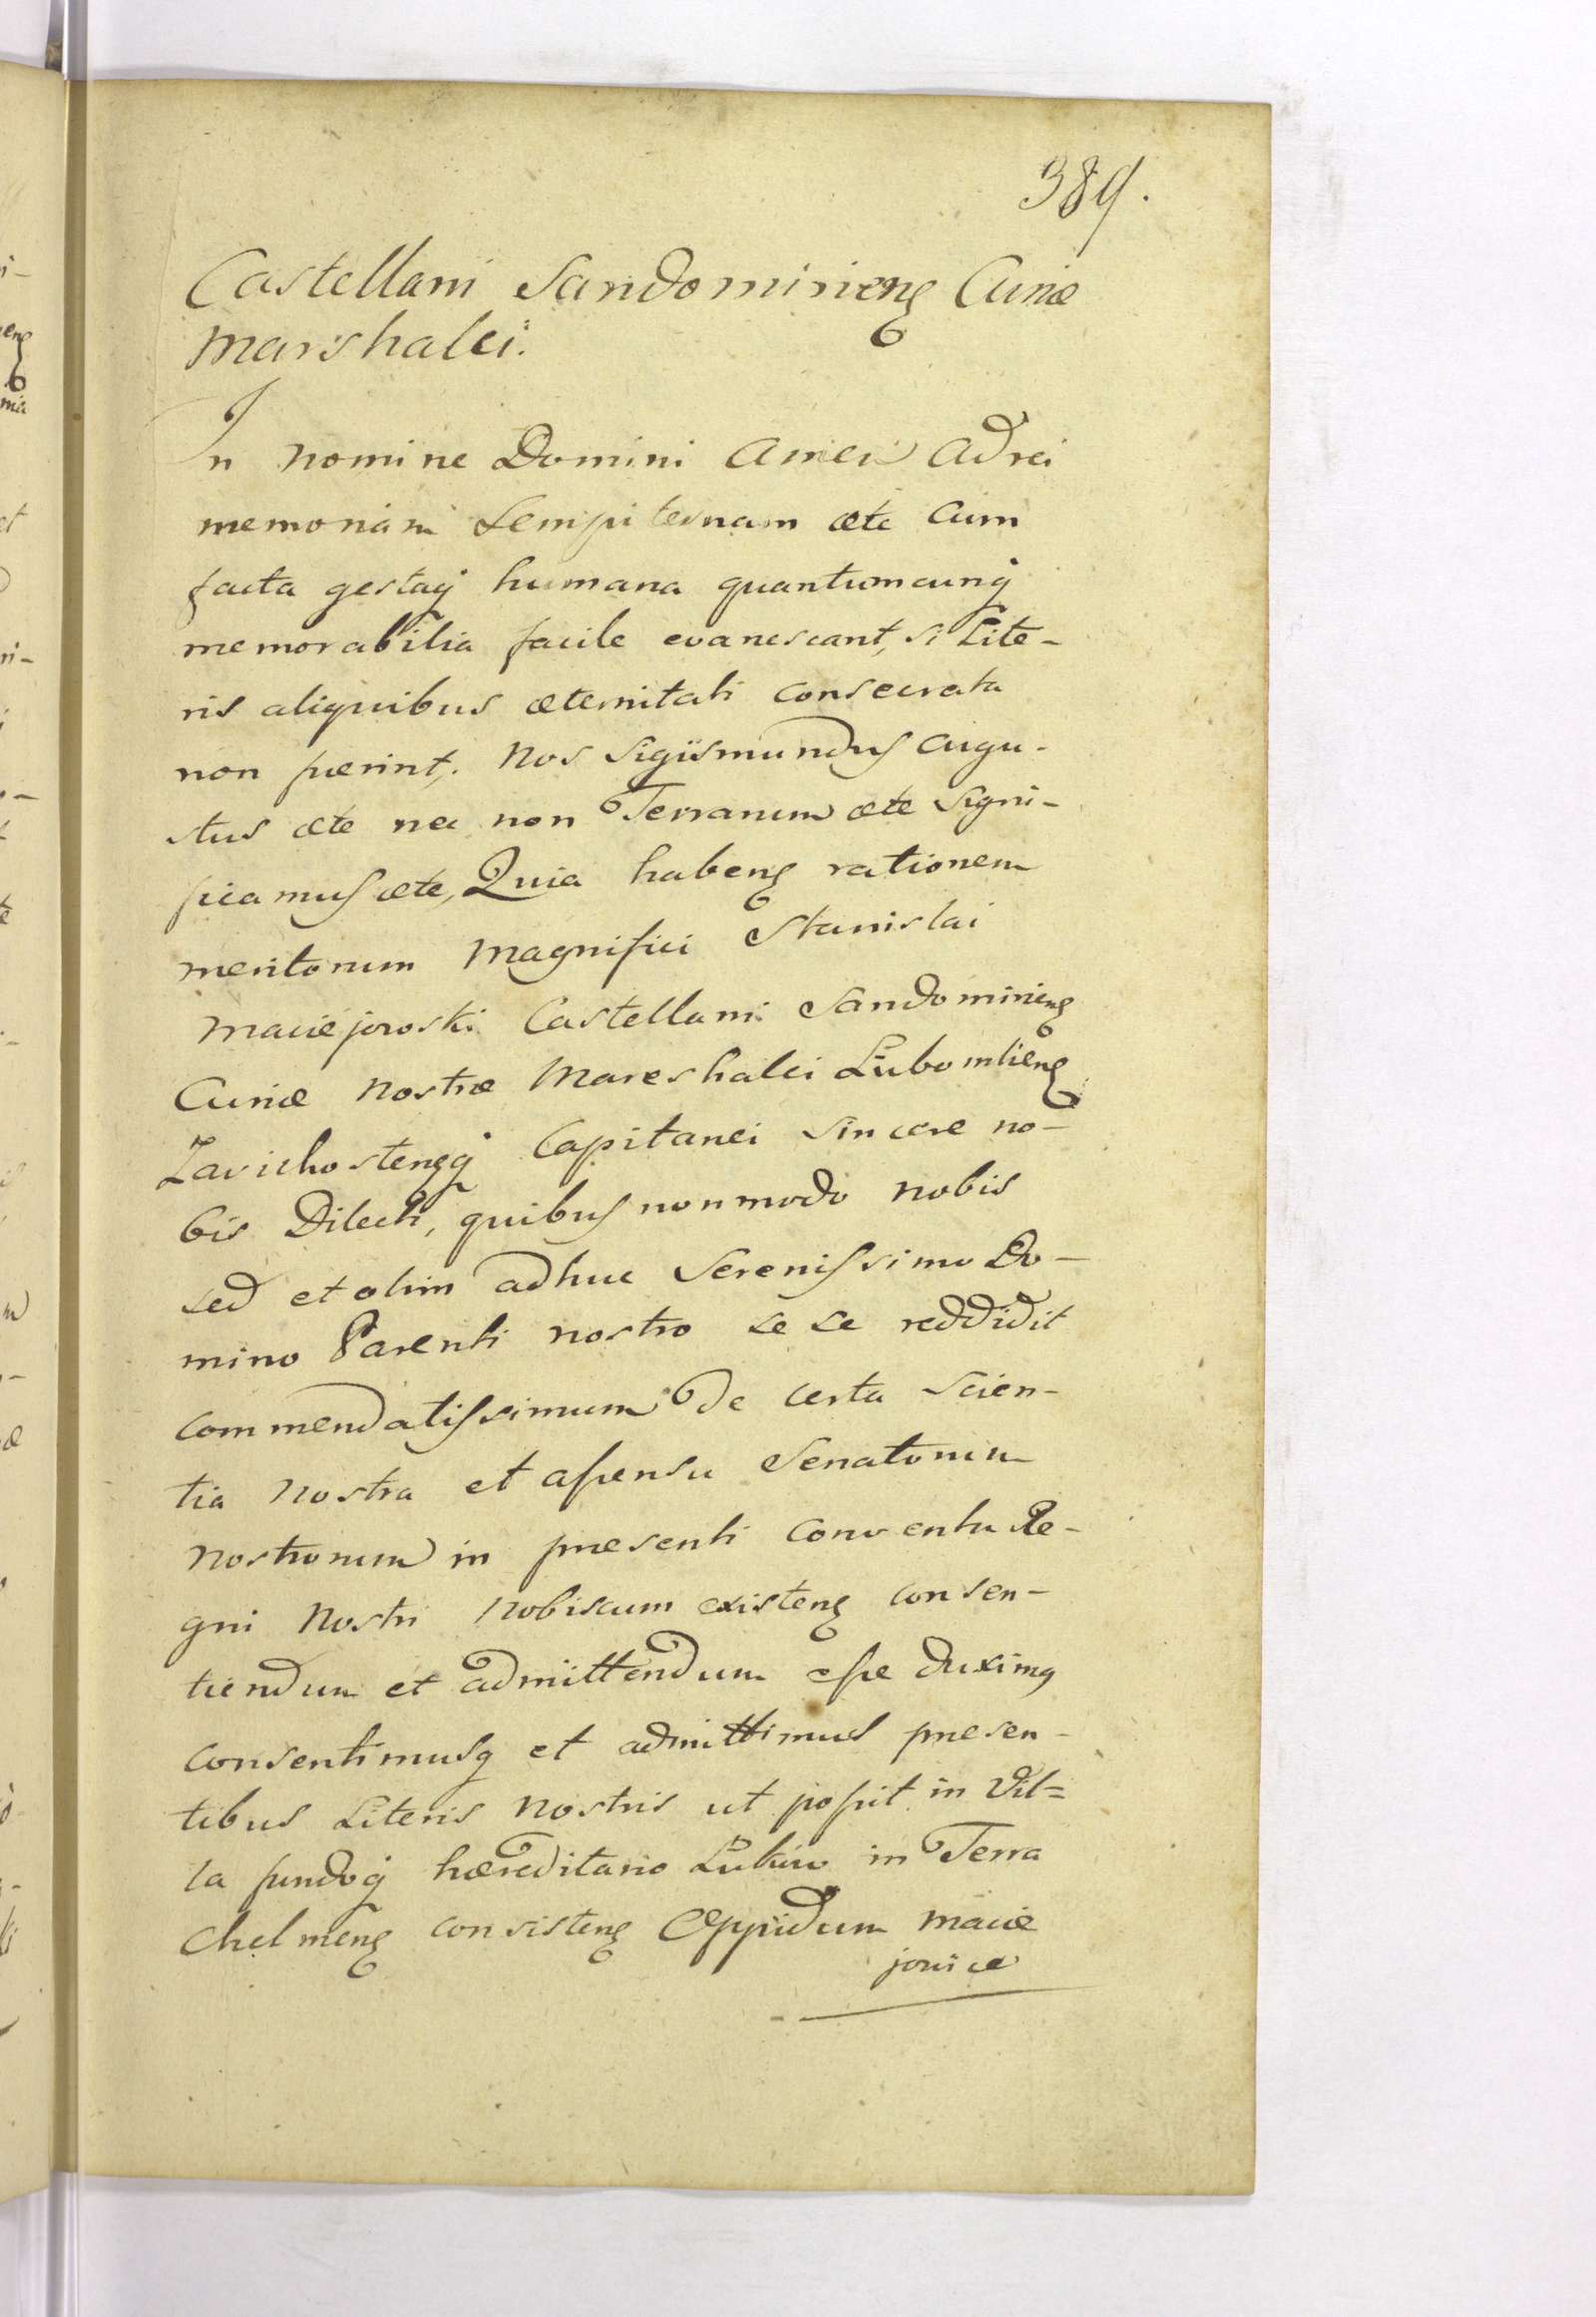 389.
Castellani Sandomirieng Curiæ
Marshalci.
In nomine Domini Amen Ad rei
memoriam Sempiternam æte Cum
facta gestaq humana quantumcunq
memorabilia facile evanescant, si Lite-
ris aliquibus æternitati consecrata
non fuerint. Nos Sigismundus Augu-
stus æte nec non Terrarum æte Signi-
ficamus æte, Quia habeng rationem
meritorum Magnifici Stanislai
Macieiowski Castellani Sandomirieng
Curiæ Nostræ Mareshalci Lubomlieng
Zavichostengq Capitanei Sincere no-
bis Dilecti, quibus non modo nobis
sed et olim adhuc Serenissimo Do-
mino Parenti nostro se se reddidit
commendatissimum De certa Scien-
tia Nostra et assensu Senatorum
Nostrorum in præsenti Conventu Re-
gni Nostri Nobiscum existeng consen-
tiendum et admittendum esse duximq
Consentimusq et admittimus præsen-
tibus Literis Nostris ut possit in Vil=
la fundoq hæreditario Lukow in Terra
Chelmeng consisteng Oppidum Macie
jowice